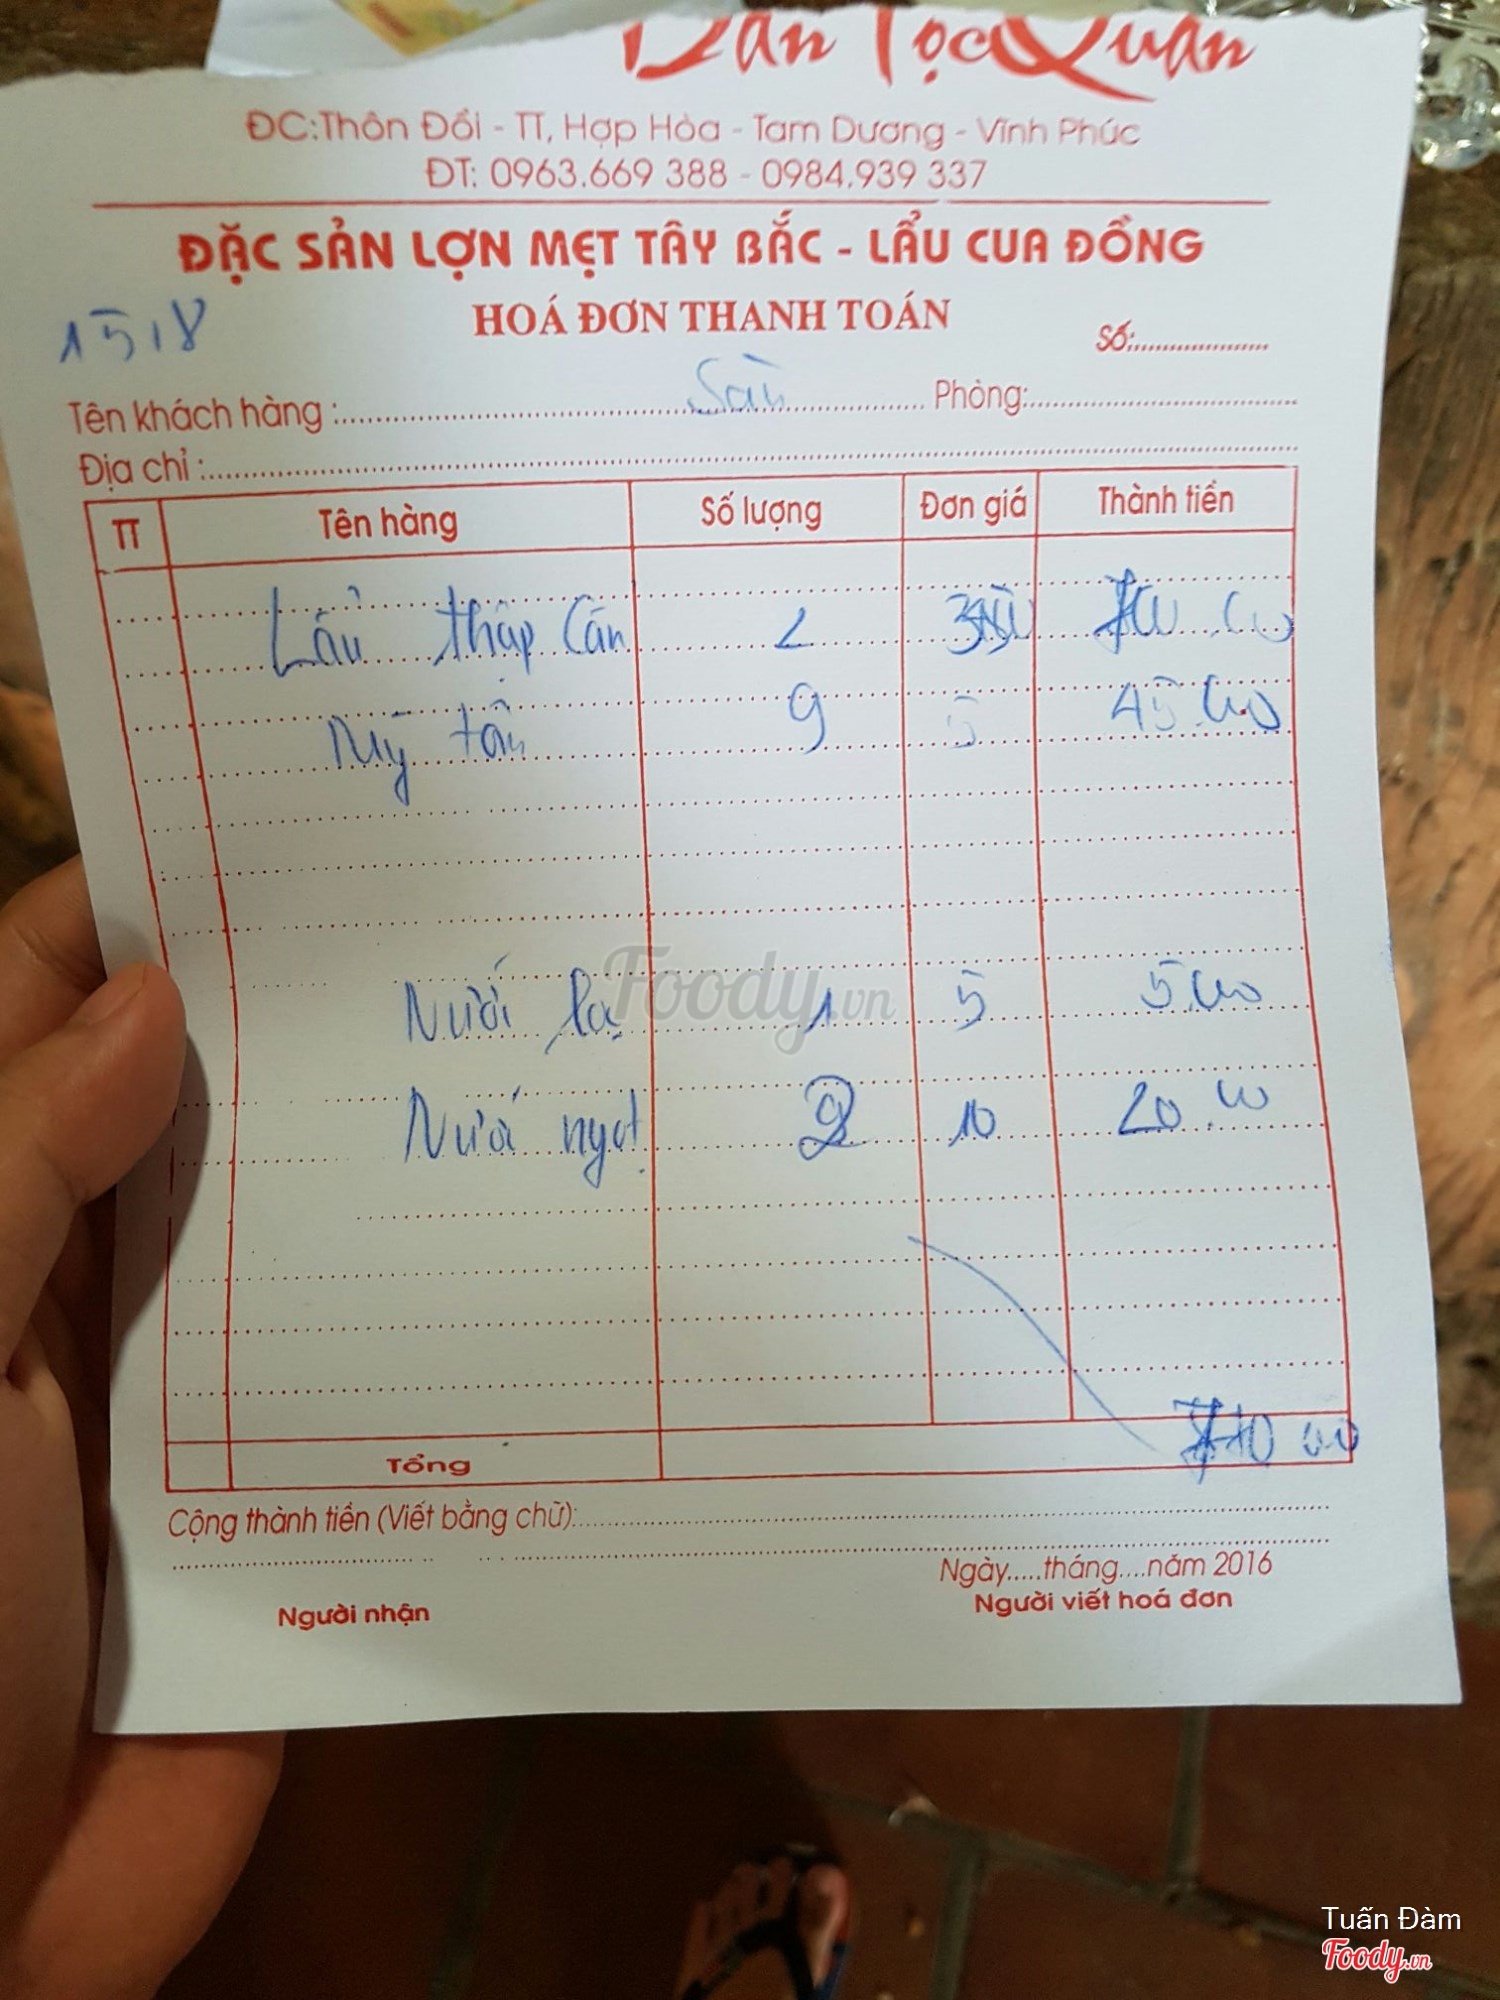 Dân Tộc Quán
ĐC:Thôn Đồi - TT, Hợp Hòa - Tam Dương - Vĩnh Phúc
ĐT: 0963.669 388 - 0984.939 337
ĐẶC SẢN LỢN MẸT TÂY BẮC - LẨU CUA ĐỒNG
HOÁ ĐƠN THANH TOÁN
15/8
Số:....................
Tên khách hàng :.................... Phòng:....................
Địa chỉ :....................
TT Tên hàng Số lượng Đơn giá Thành tiền
Lẩu thập cẩn 2
Mỳ tôm 9 5 45.000
Nước lọc 1 5 5.000
Nước ngọt 2 10 20.00
Tổng
Cộng thành tiền (Viết bằng chữ):....................
Ngày.....tháng....năm 2016
Người nhận Người viết hoá đơn
Foody.vn
Tuấn Đàm
Foody.vn